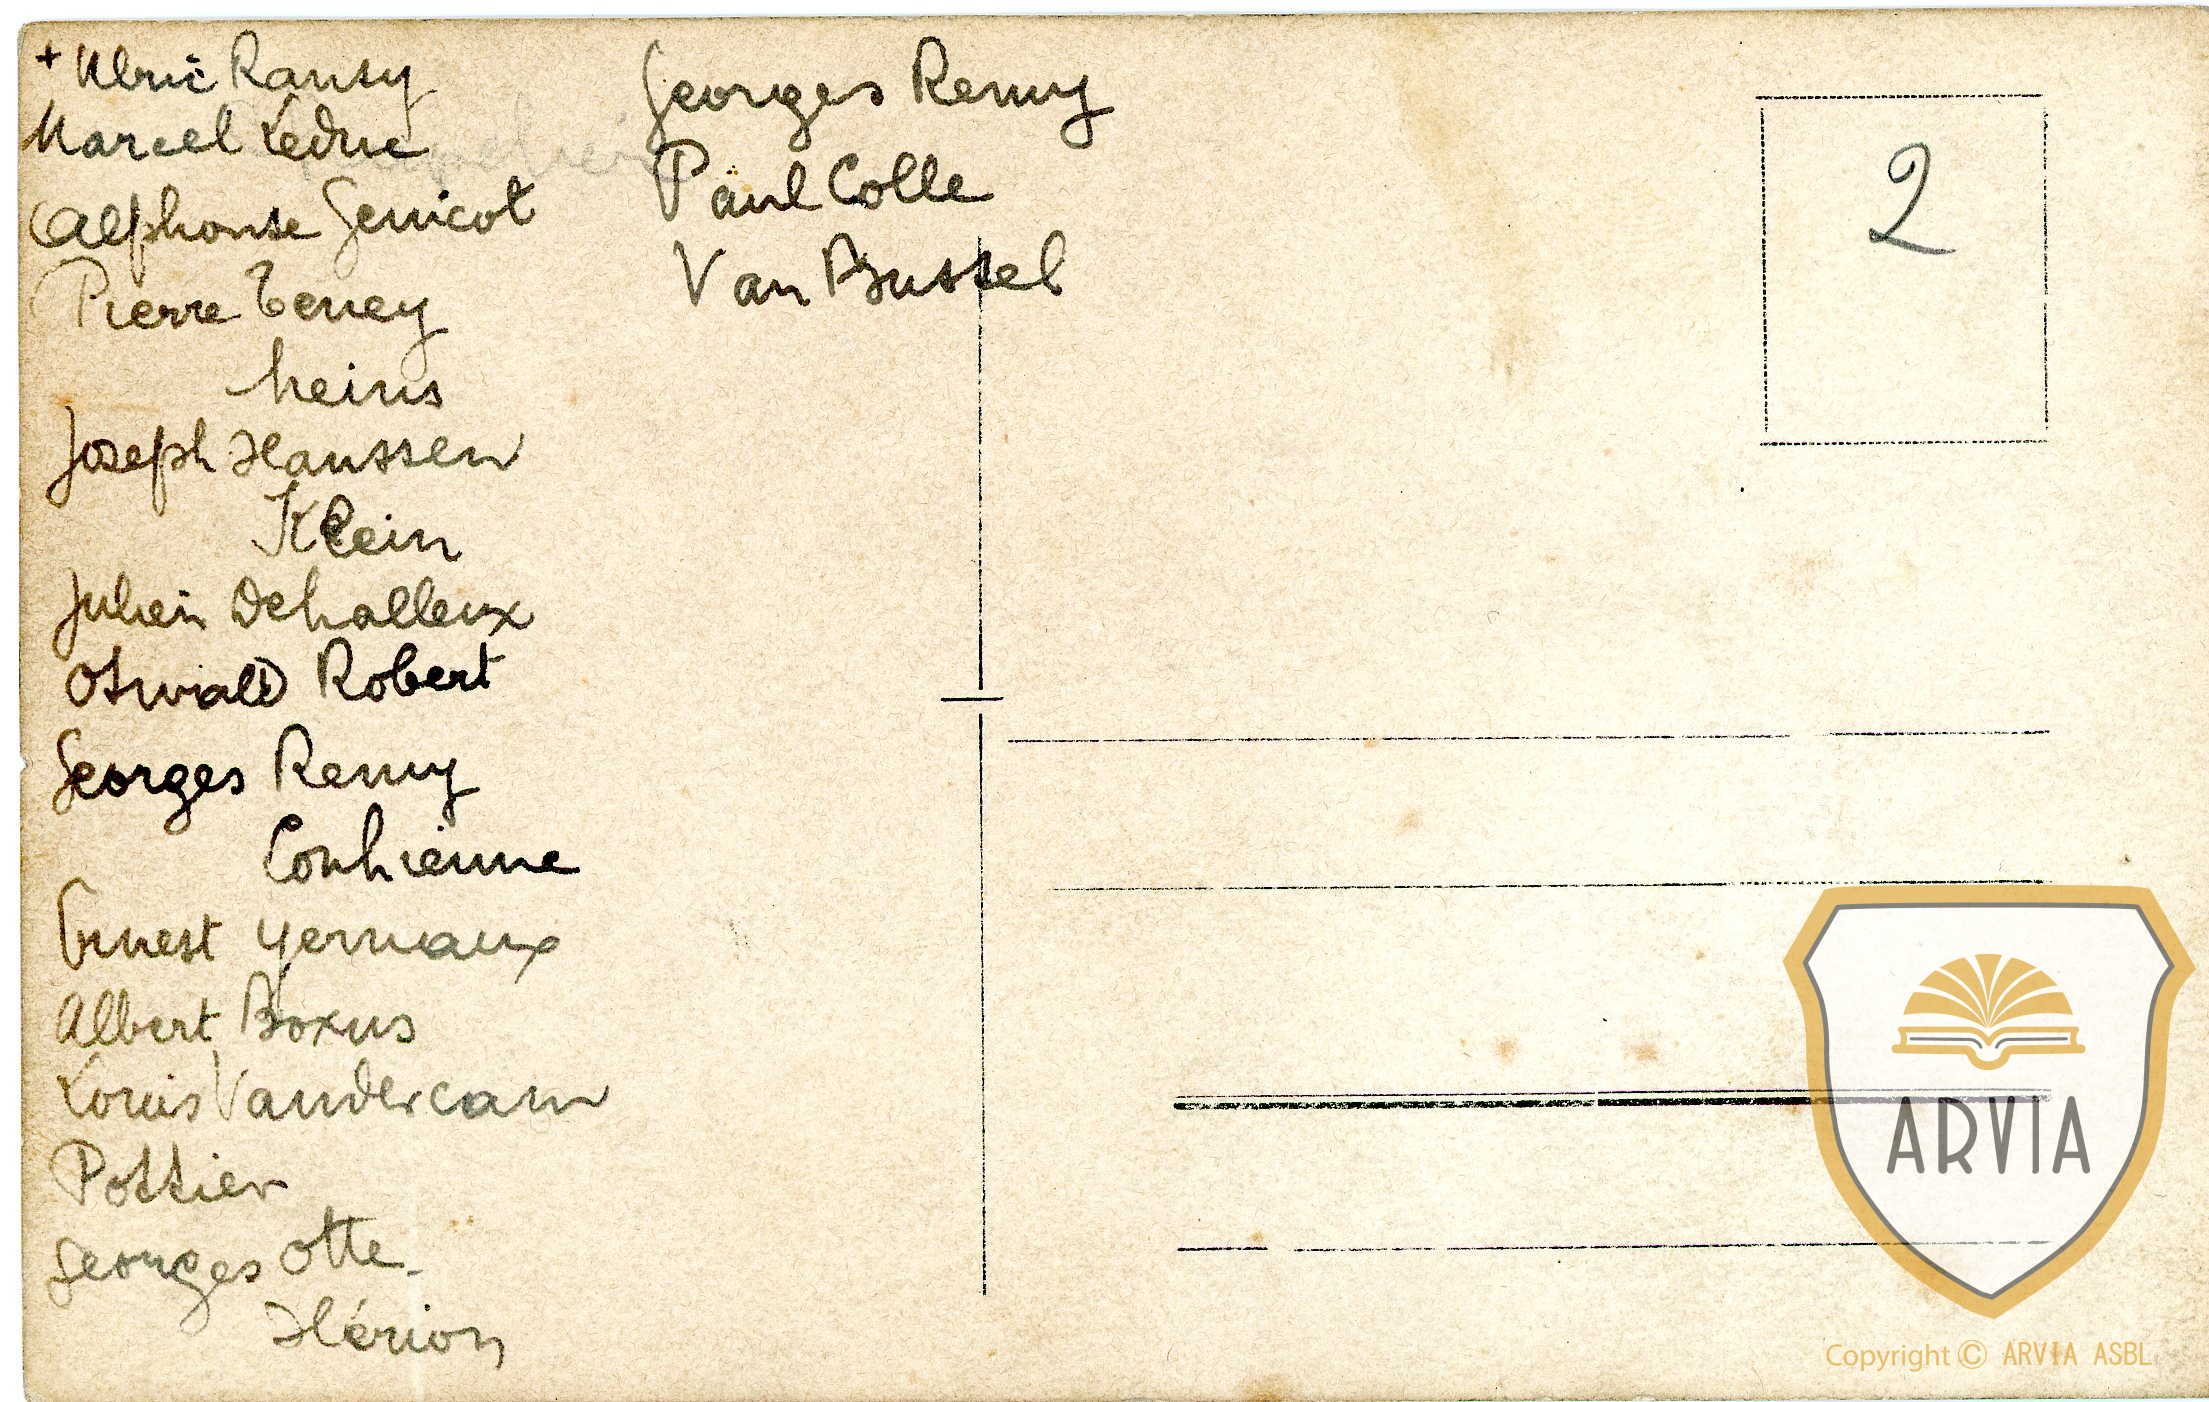 + Ulric Ransy
Marcel Leduc
Alphonse Genicot
Pierre Teney
heins
Joseph Hanssen
Klein
Julien Dehalleux
Oswald Robert
Georges Remy
Conhienne
Ernest Yernaux
Albert Boxus
Louis Vandercam
Pottier
Georges Otte.
Hérion
Georges Remy
Paul Colle
Van Bussel
2
ARVIA
Copyright © ARVIA ASBL